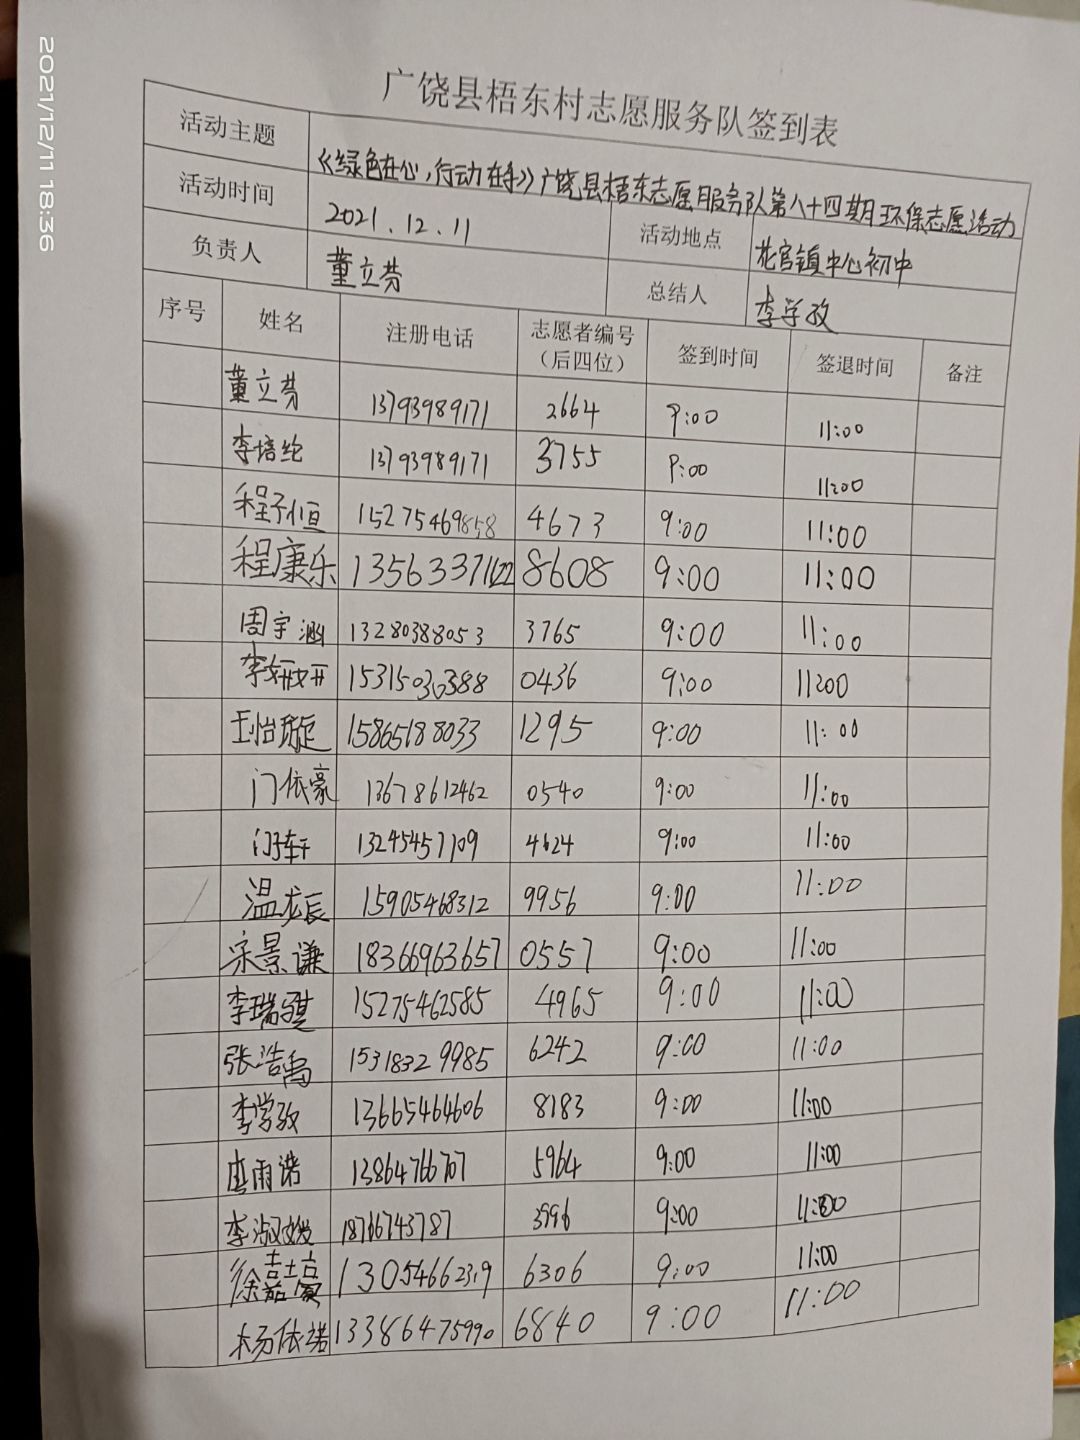 2021/12/11 18:36
广饶县梧东村志愿服务队签到表
活动主题 《绿色在心,行动在手》广饶县梧东志愿服务队第八十四期环保志愿活动
活动时间 2021.12.11 活动地点 花官镇中心初中
负责人 董立芬 总结人 李学孜
序号 姓名 注册电话 志愿者编号（后四位） 签到时间 签退时间 备注
董立芬 13793989171 2664 9:00 11:00
李培纶 13793989171 3755 9:00 11:00
程子恒 15275469858 4673 9:00 11:00
程康乐 13563371622 8608 9:00 11:00
周宇涵 13280388053 3765 9:00 11:00
李妍妍 15315030388 0436 9:00 11:00
王怡璇 15865188033 1295 9:00 11:00
门依豪 13678612462 0540 9:00 11:00
13245457109 4624 9:00 11:00
温龙辰 15905468312 9956 9:00 11:00
宋景谦 18366963657 0557 9:00 11:00
李瑞骐 15275462585 4965 9:00 11:00
张浩禹 15318329985 6242 9:00 11:00
李学孜 13665464606 8183 9:00 11:00
雨诺 13864766707 5964 9:00 11:00
李淑媛 18766743787 3996 9:00 11:00
徐嘉 13054662319 6306 9:00 11:00
杨依诺 13386475990 6840 9:00 11:00